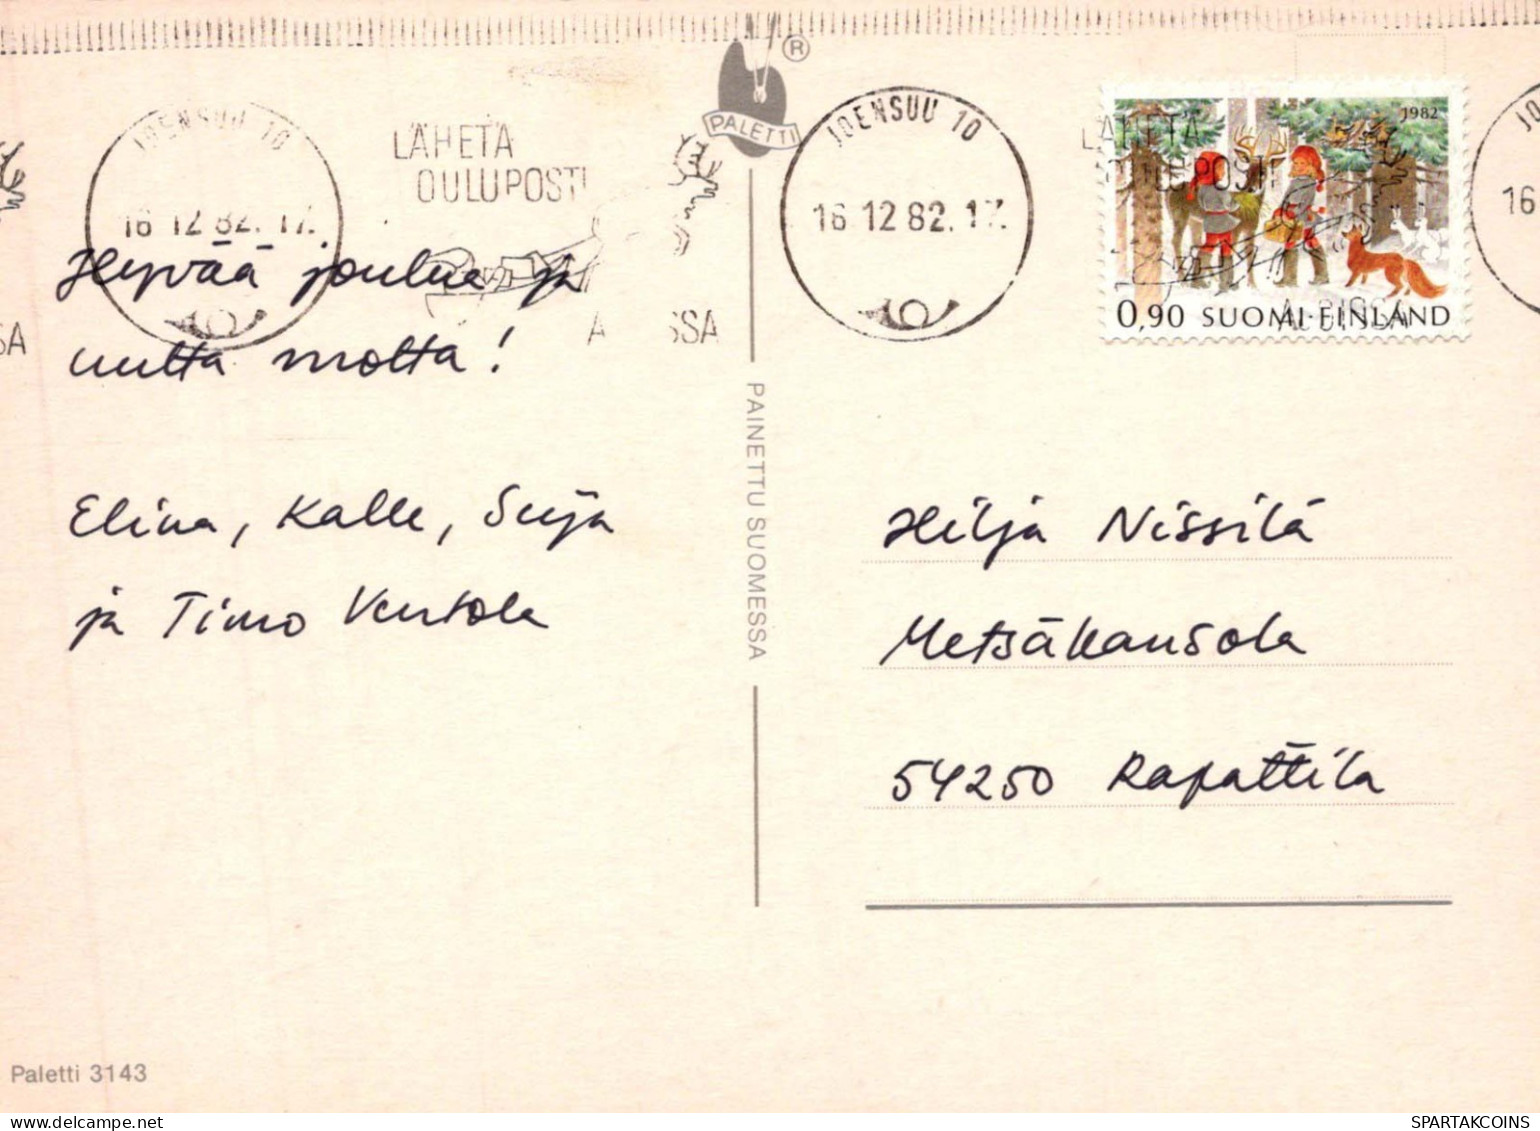 JOENSUU 10
16 12 82. 17.
LÄHETÄ
OULUPOSTI
PALETTI
®
JOENSUU 10
16 12 82. 17.
LÄHETÄ
1982
0,90 SUOMI-FINLAND
16
SSA
Hyvää joulua ja
uutta vuotta!
Elina, Kalle,
ja Timo
PAINETTU SUOMESSA
Hilja Nissilä
Metsäkansola
54250 Rapattila
Paletti 3143
SPARTAKCOINS